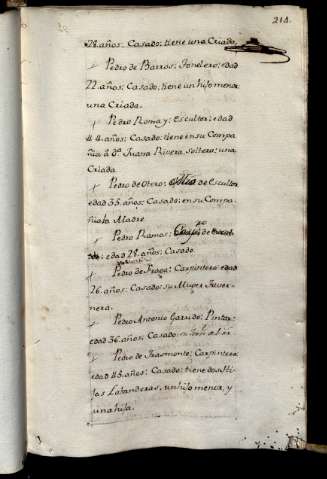 214.
28. años: Casado: tiene una Criada.
Pedro de Barros: Tonelero: edad
22. años: Casado: tiene un hijo menor
una Criada.
Pedro Roma y: Escultor: edad
44. años: Casado: tiene en su Compa
ñia a dª Juana Rivera soltera: una
Criada
Pedro de Otero: de Escultor
edad 35. años: Casado: en su Compa
ñia la Madre
Pedro Ramos: de
edad 28. años: Casado
Pedro de Fraga: Carpintero: edad
26. años: Casado: su Muger Taver
nera.
Pedro Antonio Garrido: Pintor:
edad 36. años: Casado:
Pedro de Trasmonte: Carpintero:
edad 45. años: Casado: tiene dos Hi
jas Labanderas, un hijo menor, y
una hija.